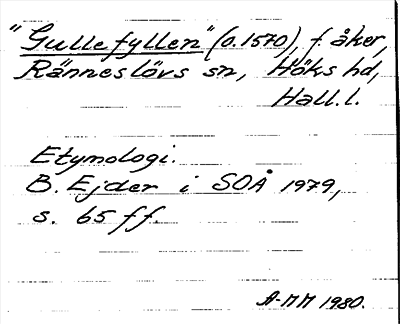 "Gullefyllen" (o. 1570), f. åker,
Ränneslövs sn, Höks hd,
Hall. l.
Etymologi.
B. Ejder i SOÅ 1979,
s. 65 ff.
A-MM 1980.